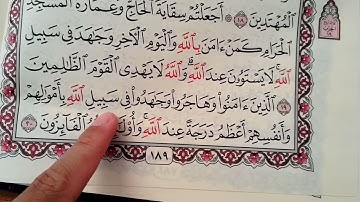 ٱلْمُهْتَدِينَ ١٨ ۞ أَجَعَلْتُمْ سِقَايَةَ ٱلْحَآجِّ وَعِمَارَةَ ٱلْمَسْجِدِ
ٱلْحَرَامِ كَمَنْ ءَامَنَ بِٱللَّهِ وَٱلْيَوْمِ ٱلْءَاخِرِ وَجَٰهَدَ فِى سَبِيلِ
ٱللَّهِ ۚ لَا يَسْتَوُۥنَ عِندَ ٱللَّهِ ۗ وَٱللَّهُ لَا يَهْدِى ٱلْقَوْمَ ٱلظَّٰلِمِينَ
١٩ ٱلَّذِينَ ءَامَنُوا۟ وَهَاجَرُوا۟ وَجَٰهَدُوا۟ فِى سَبِيلِ ٱللَّهِ بِأَمْوَٰلِهِمْ
وَأَنفُسِهِمْ أَعْظَمُ دَرَجَةً عِندَ ٱللَّهِ ۚ وَأُو۟لَٰٓئِكَ هُمُ ٱلْفَآئِزُونَ ٢٠
١٨٩